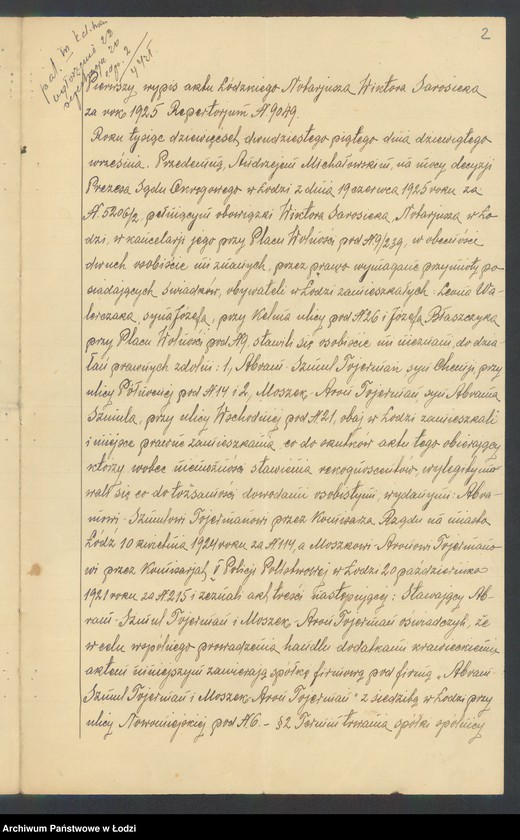 2
Pierwszy wypis aktu Łódzkiego Notarjusza Wiktora Sarosieka
za rok 1925 Repertorjum № 9049.
Roku tysiąc dziewięćset dwudziestego piątego dnia dziewiątego
września. Przedemną, Andrzejem Michałowskim, na mocy decyzji
Prezesa Sądu Okręgowego w Łodzi z dnia 19 czerwca 1925 roku za
№ 5206/2, pełniącym obowiązki Wiktora Sarosieka, Notarjusza w Ło-
dzi, w kancelarji jego przy Placu Wolności pod № 9/239, w obecności
dwuch osobiście mi znanych, przez prawo wymagane przymioty po-
siadających świadków, obywateli w Łodzi zamieszkałych: Leona Wa-
lerczaka, syna Józefa, przy Kelma ulicy pod № 26 i Józefa Błaszczyka
przy Placu Wolności pod № 9, stawili się osobiście mi nieznani, do dzia-
łań prawnych zdolni: 1, Abram-Szmul Tojerman syn Chemji, przy
ulicy Północnej pod № 14 i 2, Moszek-Aron Tojerman syn Abrama
Szmula, przy ulicy Wschodniej pod № 21, obaj w Łodzi zamieszkali
i miejsce prawne zamieszkania co do skutków aktu tego obierający
którzy wobec niemożności stawienia rekognoscentów, wylegitymo-
wali się co do tożsamości dowodami osobistymi, wydanymi: Abra-
mowi-Szmulowi Tojermanowi przez Komisarza Rządu na miasto
Łódź 10 kwietnia 1924 roku za № 114, a Moszkowi-Aronowi Tojermano-
wi przez Komisarjat V Policji Państwowej w Łodzi 20 października
1921 roku za № 215 i zeznali akt treści następującej: Stawający Ab-
ram-Szmul Tojerman i Moszek-Aron Tojerman oświadczyli, że
w celu wspólnego prowadzenia handlu dodatkami krawieckiemi
aktem niniejszym zawierają spółkę firmową pod firmą "Abram
Szmul Tojerman i Moszek Aron Tojerman" z siedzibą w Łodzi przy
ulicy Nowomiejskiej pod № 6. - §2 Termin trwania spółki spólnicy
Archiwum Państwowe w Łodzi